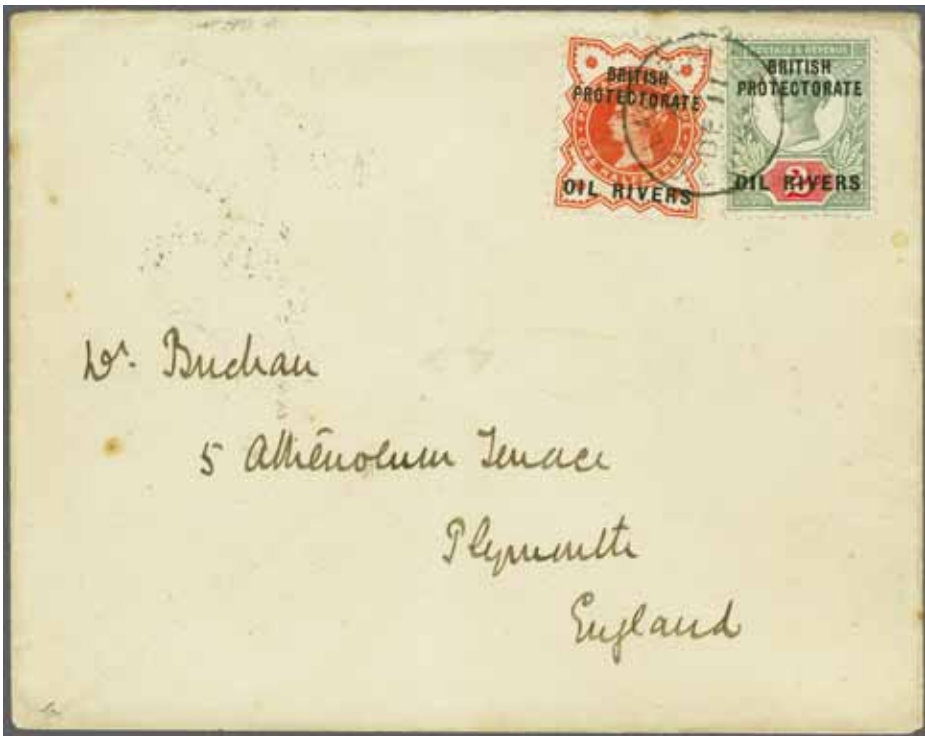 BRITISH
PROTECTORATE
ONE HALFPENNY
OIL RIVERS
POSTAGE & REVENUE
BRITISH
PROTECTORATE
2
OIL RIVERS
DE 11
Dr. Buchan
5 Athēnoeum Terrace
Plymouth
England